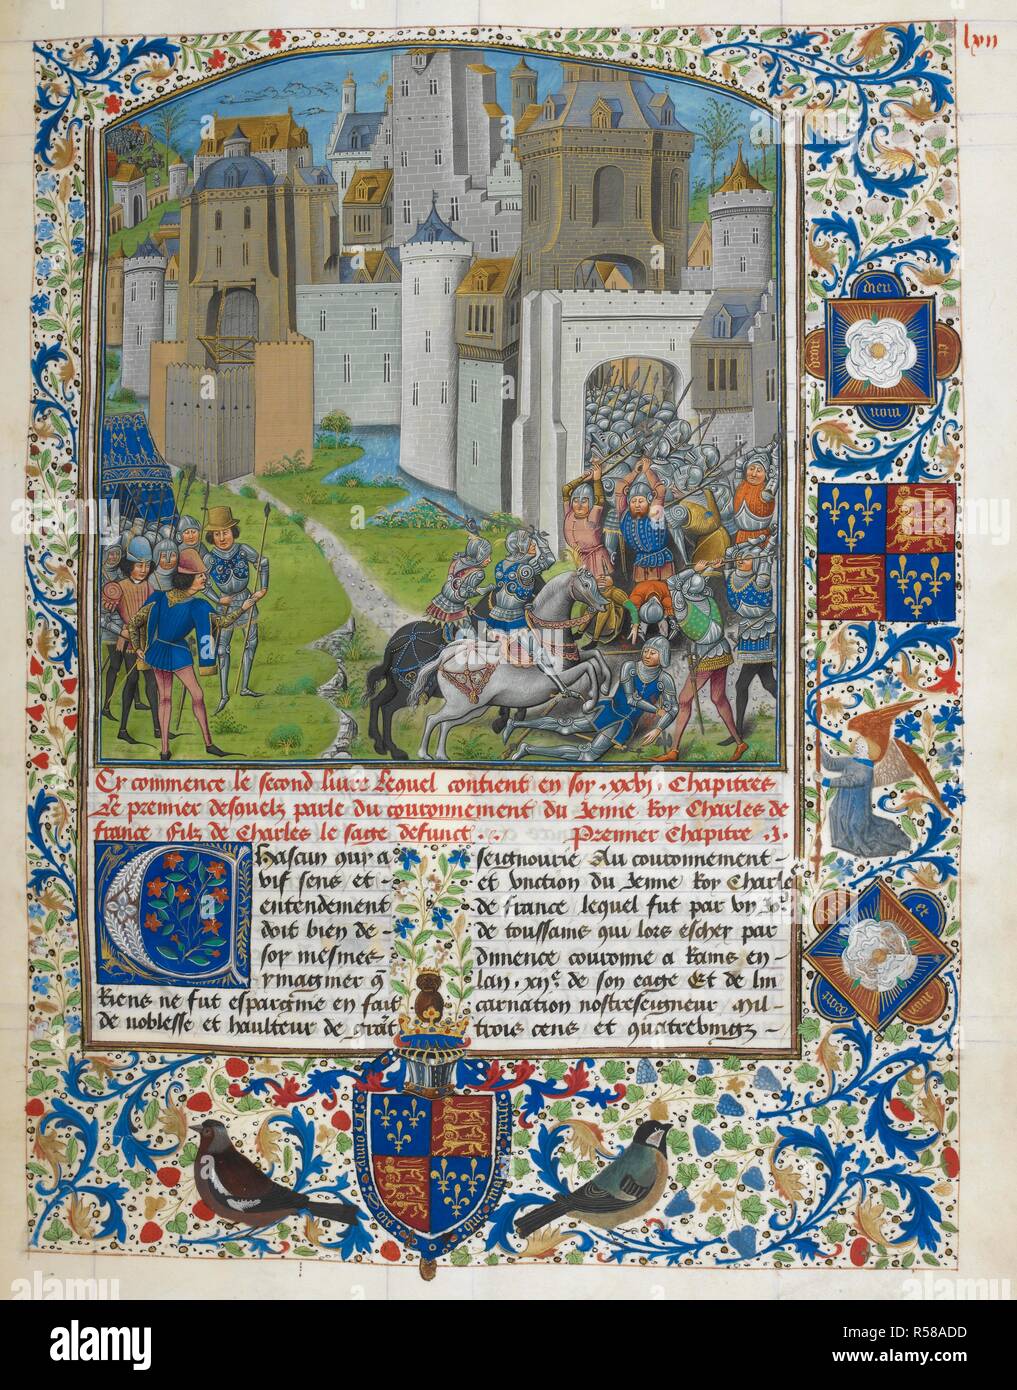 lxii
Cy commence le second livre Lequel contient en soy .xxvj. Chapitres
Le premier desquelz parle du couronnement du Jenne Roy Charles de
france Filz de Charles le saige deffunct. Premier Chapitre .j.
Chascun quy a
vif sens et
entendement
doit bien de
soy mesmes
ymaginer q̄
Riens ne fut espargnie en fait
de noblesse et haulteur de grāt
seignourie Au couronnement
et vnction du Jenne Roy Charles
de france lequel fut par vng Jor
de toussains quy lors escher par
dimence couronne a Rains en
lan .xije. de son eage Et de lin
carnation nostreseigneur Mil
trois cens et quatrebingz
dieu
et
mon
droit
Soit
quy
mal
pence
dieu
et
mon
droit
alamy
Image ID: R58ADD
www.alamy.com